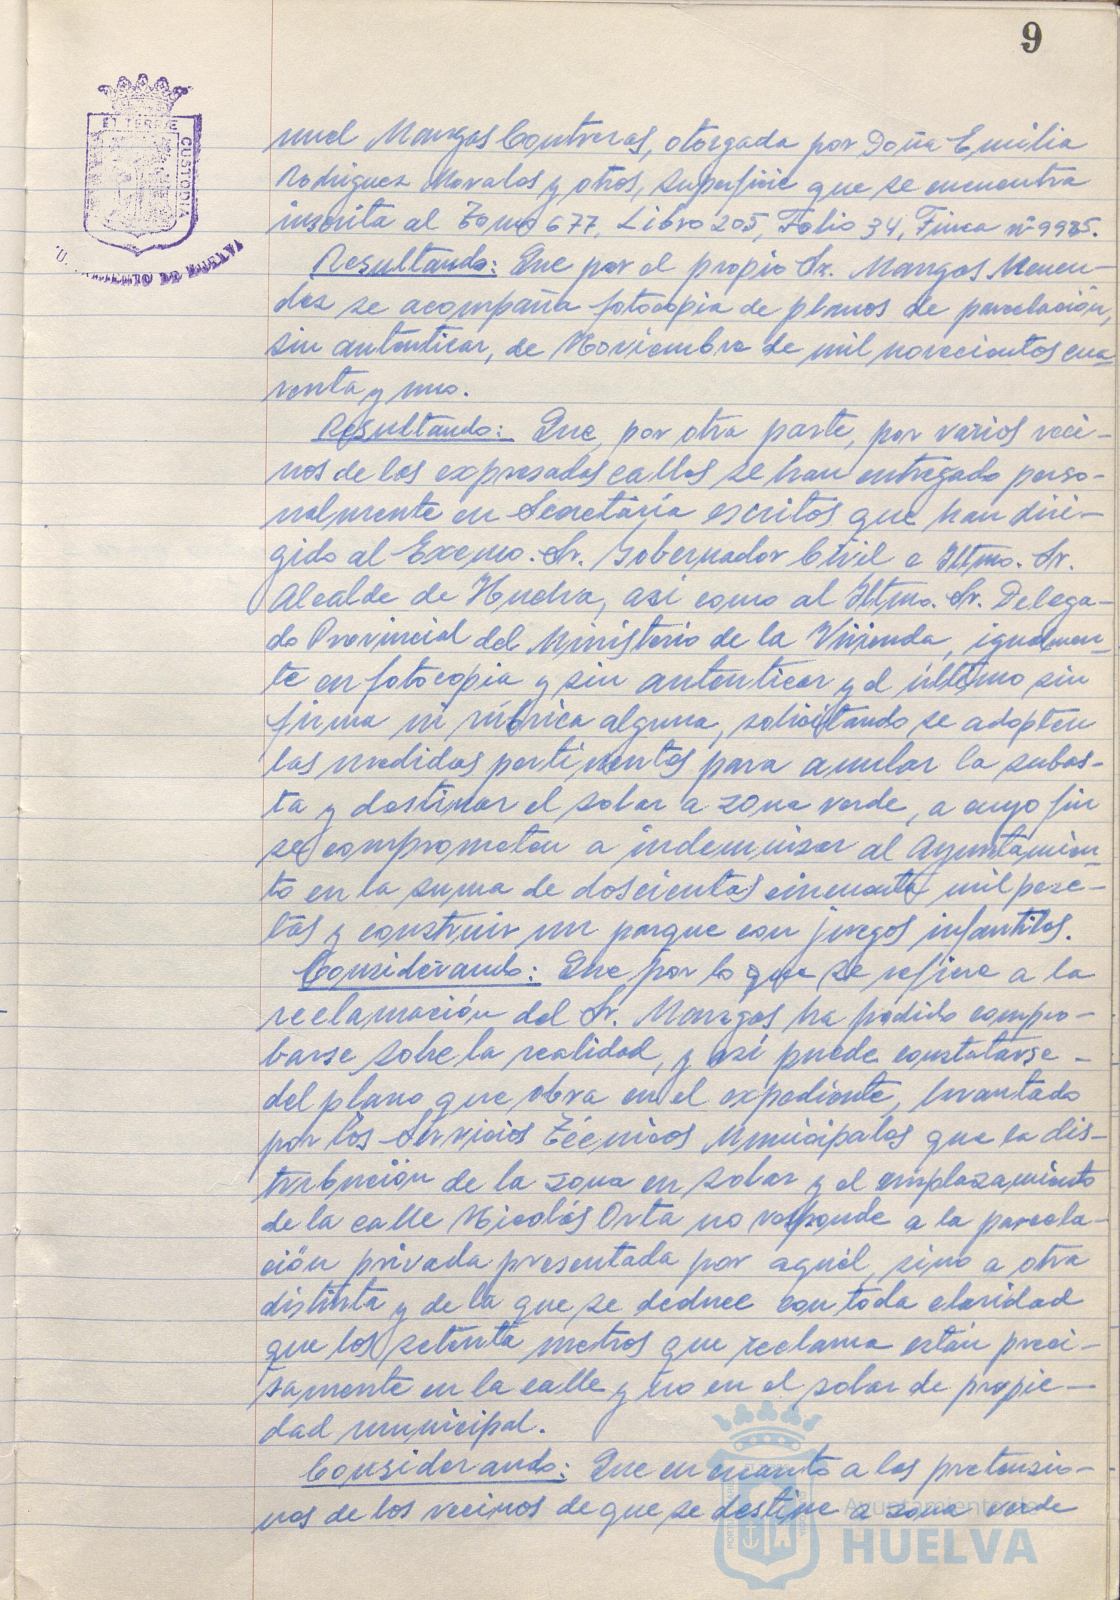 9
ET TERRAE
CUSTODIA
nuel Mangas Contreras, otorgada por Doña Emilia
Rodríguez Morales y otros, superficie que se encuentra
inscrita al Tomo 677, Libro 205, Folio 34, Finca nº
Resultando: Que por el propio Sr. Mangas Menen-
dez se acompaña fotocopia de planos de parcelación,
sin autenticar, de Noviembre de mil novecientos cua
renta y uno.
Resultando: Que, por otra parte, por varios veci-
nos de las expresadas calles se han entregado perso-
nalmente en Secretaría escritos que han diri-
gido al Excmo. Sr. Gobernador Civil e Iltmo. Sr.
Alcalde de Huelva, así como al Iltmo. Sr. Delega-
do Provincial del Ministerio de la Vivienda, igualmen-
te en fotocopia y sin autenticar y el último sin
firma ni rúbrica alguna, solicitando se adopten
las medidas pertinentes para anular la subas-
ta y destinar el solar a zona verde, a cuyo fin
se comprometen a indemnizar al Ayuntamien-
to en la suma de doscientas cincuenta mil pese-
tas y construir un parque con juegos infantiles.
Considerando: Que por lo que se refiere a la
reclamación del Sr. Mangas ha podido compro-
barse sobre la realidad, y así puede constatarse -
del plano que obra en el expediente, levantado
por los Servicios Técnicos Municipales que la dis-
tribución de la zona en solar y el emplazamiento
de la calle Nicolás Orta no responde a la parcela-
ción privada presentada por aquél, sino a otra
distinta y de la que se deduce con toda claridad
que los setenta metros que reclama están preci-
samente en la calle y no en el solar de propie-
dad municipal.
Considerando: Que en cuanto a las pretensio-
nes de los vecinos de que se destine a zona verde
Ayuntamiento de
HUELVA